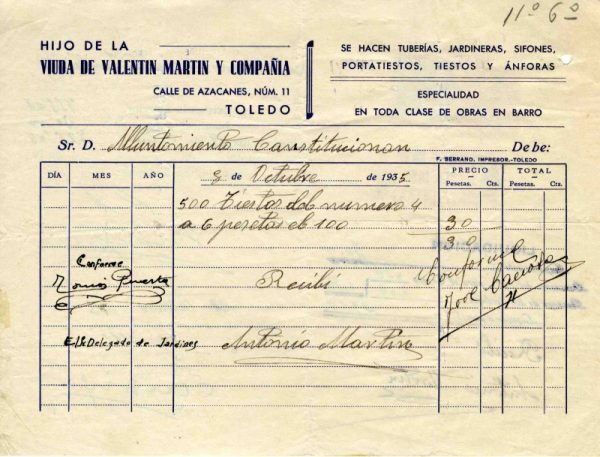 11º 6º
HIJO DE LA
VIUDA DE VALENTIN MARTIN Y COMPAÑIA
CALLE DE AZACANES, NÚM. 11
TOLEDO
SE HACEN TUBERÍAS, JARDINERAS, SIFONES,
PORTATIESTOS, TIESTOS Y ÁNFORAS
ESPECIALIDAD
EN TODA CLASE DE OBRAS EN BARRO
Sr. D. Constitucional Debe:
F. SERRANO, IMPRESOR.-TOLEDO
DÍA MES AÑO de Octubre de 1935 PRECIO TOTAL
Pesetas. Cts. Pesetas. Cts.
500 Tiestos del numero 4
a 6 pesetas el 100 30
30
Conforme
Recibí
Conforme
José
El Delegado de Jardines
Antonio Martin